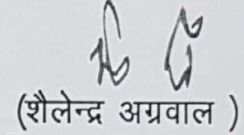 (शैलेन्द्र अग्रवाल )